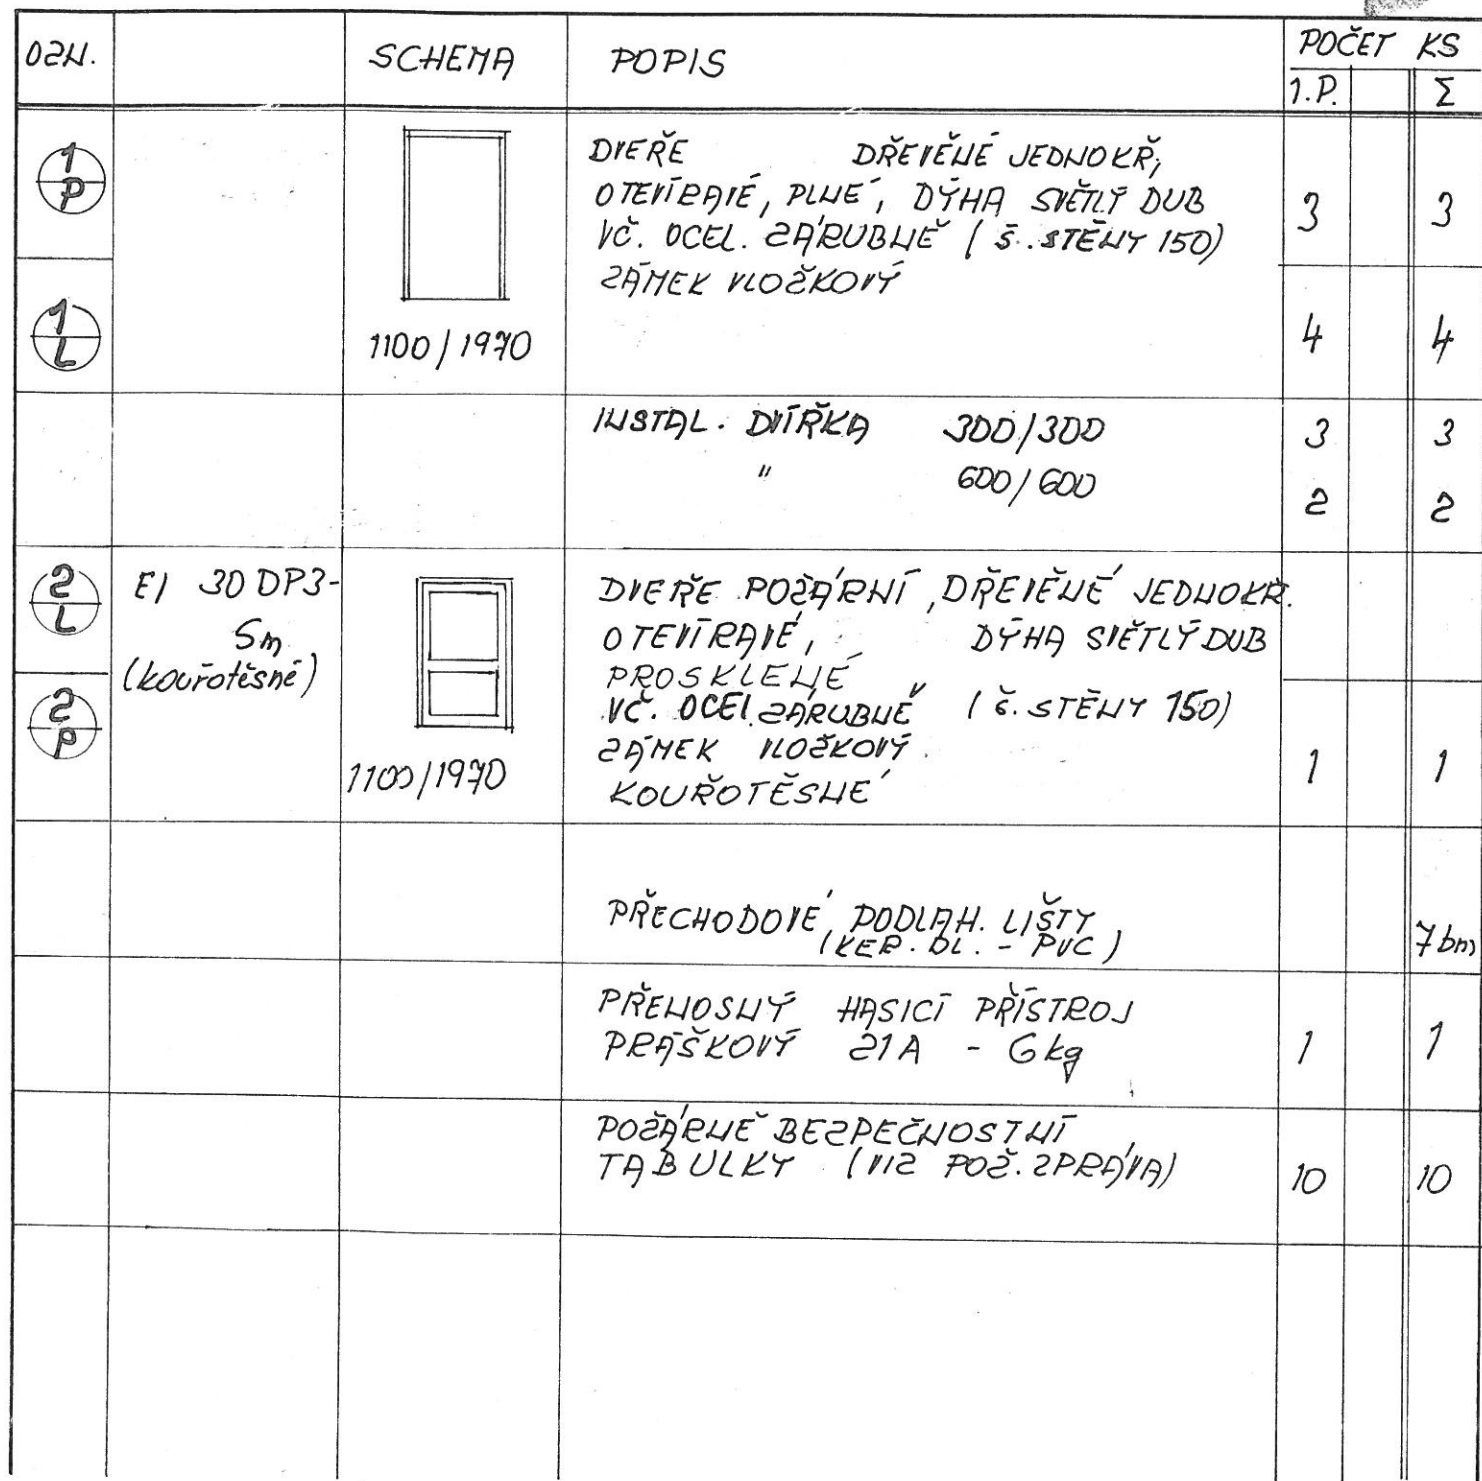 OZN. SCHEMA POPIS POČET KS
1.P. Σ
1
P
DVEŘE DŘEVĚNÉ JEDNOKŘ,
OTEVÍRAVÉ, PLNÉ, DÝHA SVĚTLÝ DUB
VČ. OCEL. ZÁRUBNĚ (Š. STĚNY 150)
3 3
ZÁMEK VLOŽKOVÝ
1
L
1100/1970
4 4
INSTAL. DVÍŘKA 300/300 3 3
" 600/600 2 2
2
L
EI 30 DP3-
Sm
(kouřotěsné)
DVEŘE POŽÁRNÍ, DŘEVĚNÉ JEDNOKŘ.
OTEVÍRAVÉ, DÝHA SVĚTLÝ DUB
PROSKLENÉ
VČ. OCEL. ZÁRUBNĚ (Š. STĚNY 150)
ZÁMEK VLOŽKOVÝ
KOUŘOTĚSNÉ
2
P
1100/1970
1 1
PŘECHODOVÉ PODLAH. LIŠTY
(KER. DL. - PVC)
7 bm
PŘENOSNÝ HASICÍ PŘÍSTROJ
PRÁŠKOVÝ 21A - 6kg 1 1
POŽÁRNĚ BEZPEČNOSTNÍ
TABULKY (VIZ POŽ. ZPRÁVA) 10 10